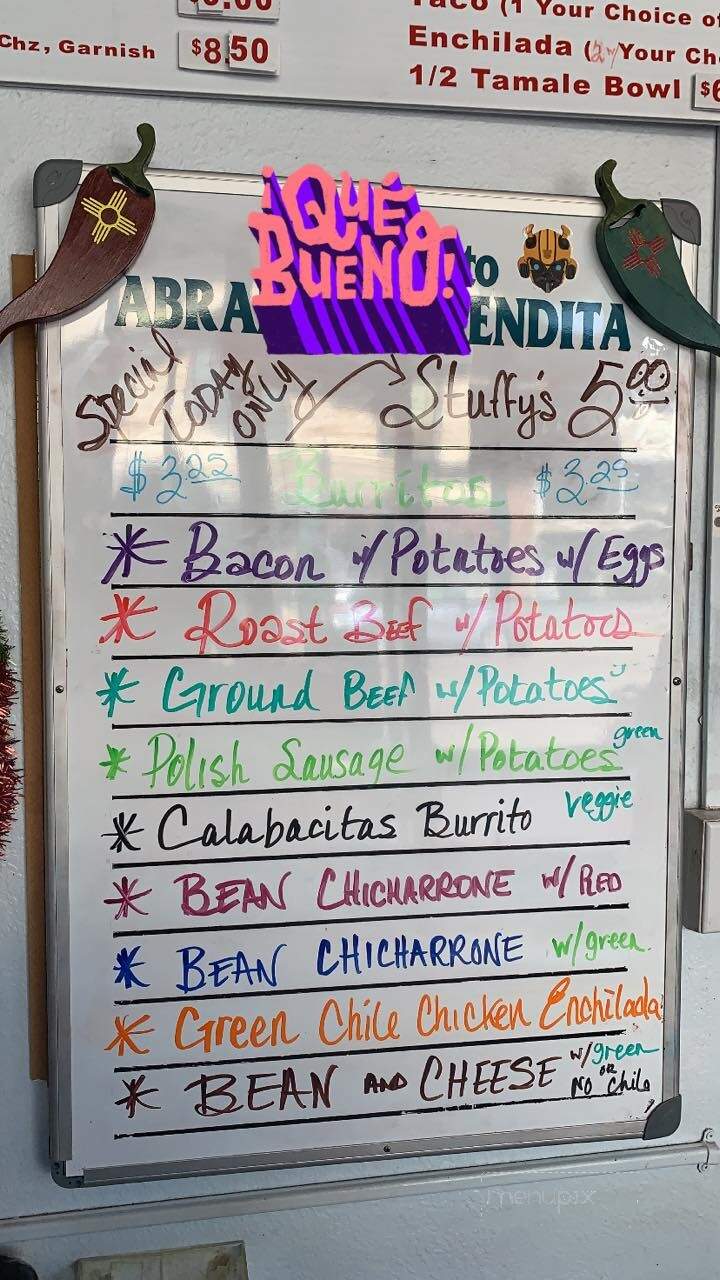 Chz, Garnish $8.50
Taco (1 Your Choice of
Enchilada (2 w/ Your Ch
1/2 Tamale Bowl $6
¡QUÉ
BUENO!
to
ABRA ENDITA
Special TODAY ONLY Stuffy's 5.00
$3.25 Burritos $3.25
* Bacon w/ Potatoes w/ Eggs
* Roast Beef w/ Potatoes
* Ground Beef w/ Potatoes
* Polish Sausage w/ Potatoes green
* Calabacitas Burrito veggie
* BEAN CHICHARRONE w/ RED
* BEAN CHICHARRONE w/ green
* Green Chile Chicken Enchilada
* BEAN AND CHEESE w/ green
or
No Chile
menupix